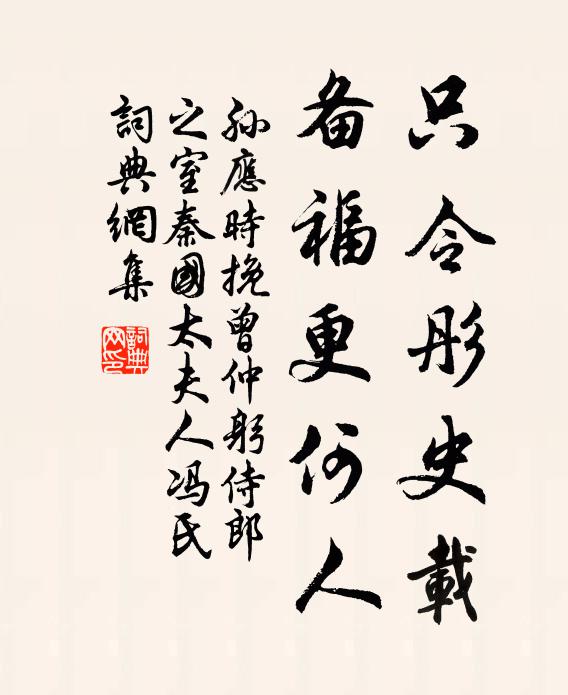 只令彤史載
备福更何人
孙應時挽曾仲躬侍郎
之室秦國太夫人冯氏
詞典網集
詞典网印